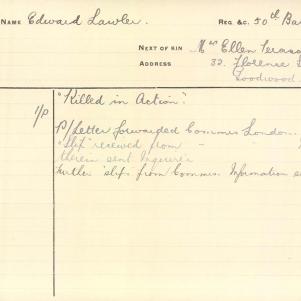 NAME Edward Lawler. REG &c. 50th Ba
NEXT OF KIN Mrs Ellen
ADDRESS 32. Florence S
Goodwood.
"Killed in Action".
1/P P/Letter forwarded Commrs London.
"Slip" received from -
therein sent Inquirer
Further slips from Commrs. Information s